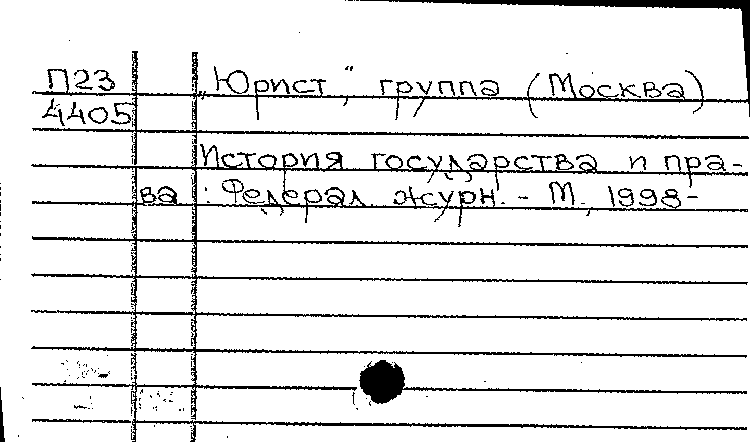 П23
4405
„Юрист", группа (Москва)
История государства и пра-
ва : Федерал. журн. - М., 1998-